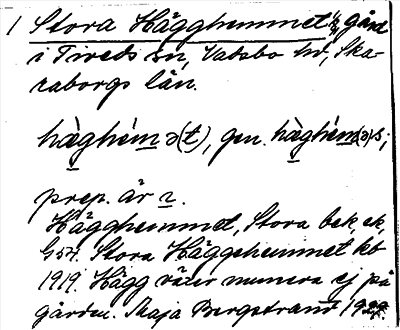 1 Stora Hägghemmet, gård
i Tiveds sn, Vadsbo hd, Ska-
raborgs län.
hæghém̲ə(t), gen. hæghém̲(ə)s;
prep. är 2.
Hägghemmet, Stora bek, ek,
G54. Stora Häggehemmet kb
1919. Hägg växer numera ej på
gården. Maja Bergstrand